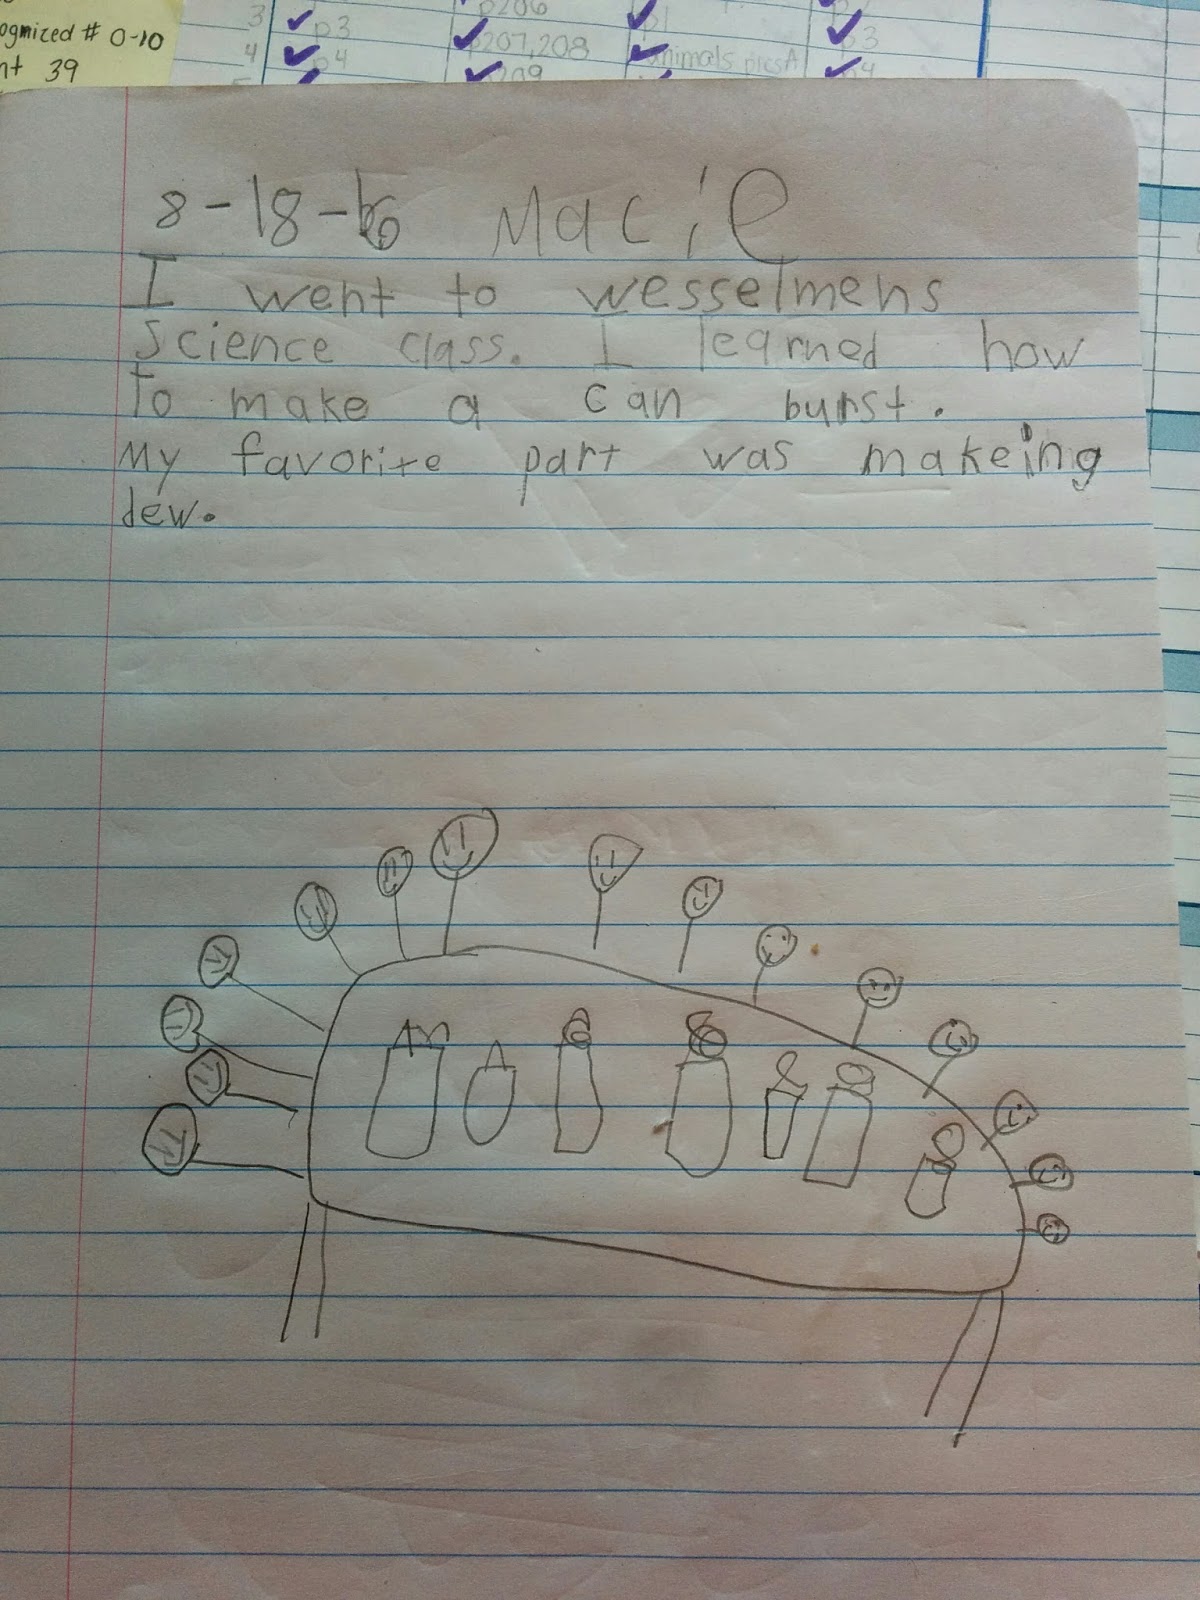 ognized # 0-10
nt 39
3 p3 p206 p1
4 p4 207,208 animals pics A p3
p4
8-18-16 Macie
I went to wesselmens
science class. I learned how
to make a can burst.
My favorite part was makeing
dew.